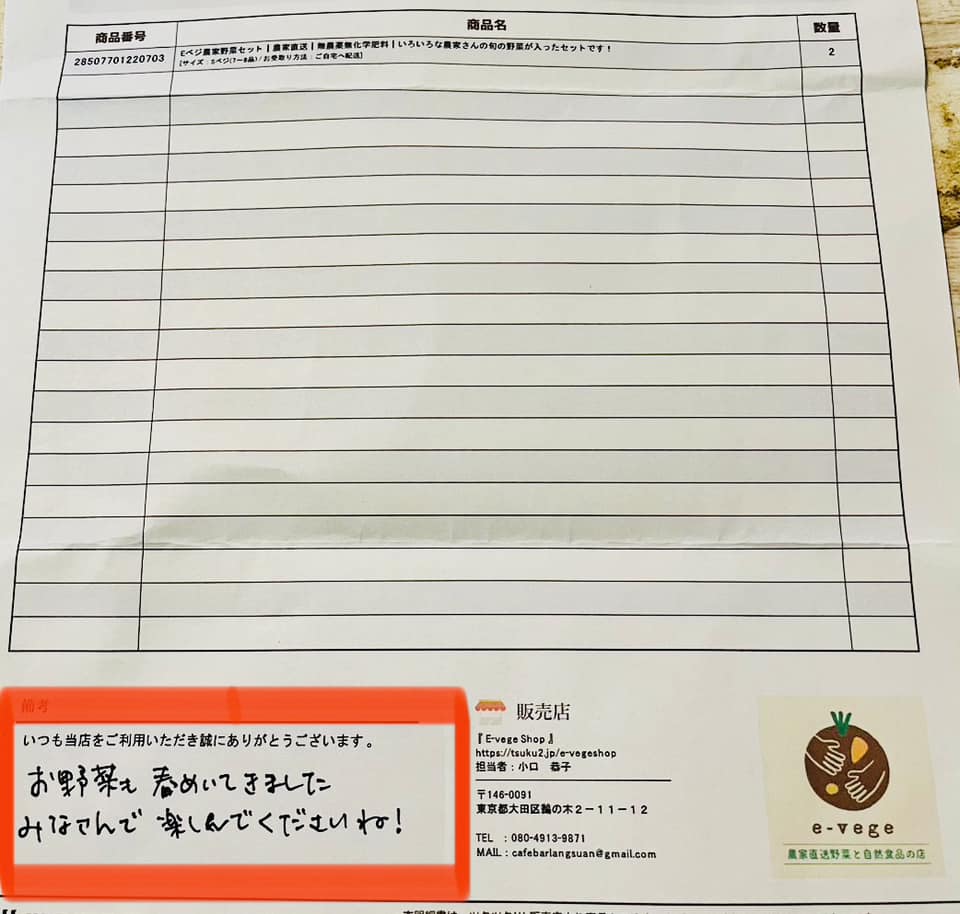 商品番号 商品名 数量
28507701220703 Eベジ農家野菜セット | 農家直送 | 無農薬無化学肥料 | いろいろな農家さんの旬の野菜が入ったセットです! 2
[サイズ:Sベジ(7〜8品) / お受取り方法:ご自宅へ配送]
備考
いつも当店をご利用いただき誠にありがとうございます。
お野菜も 春めいてきました
みなさんで 楽しんでくださいね!
販売店
『 E-vege Shop 』
https://tsuku2.jp/e-vegeshop
担当者:小口 恭子
〒146-0091
東京都大田区鵜の木2-11-12
TEL :080-4913-9871
MAIL:cafebarlangsuan@gmail.com
e-vege
農家直送野菜と自然食品の店